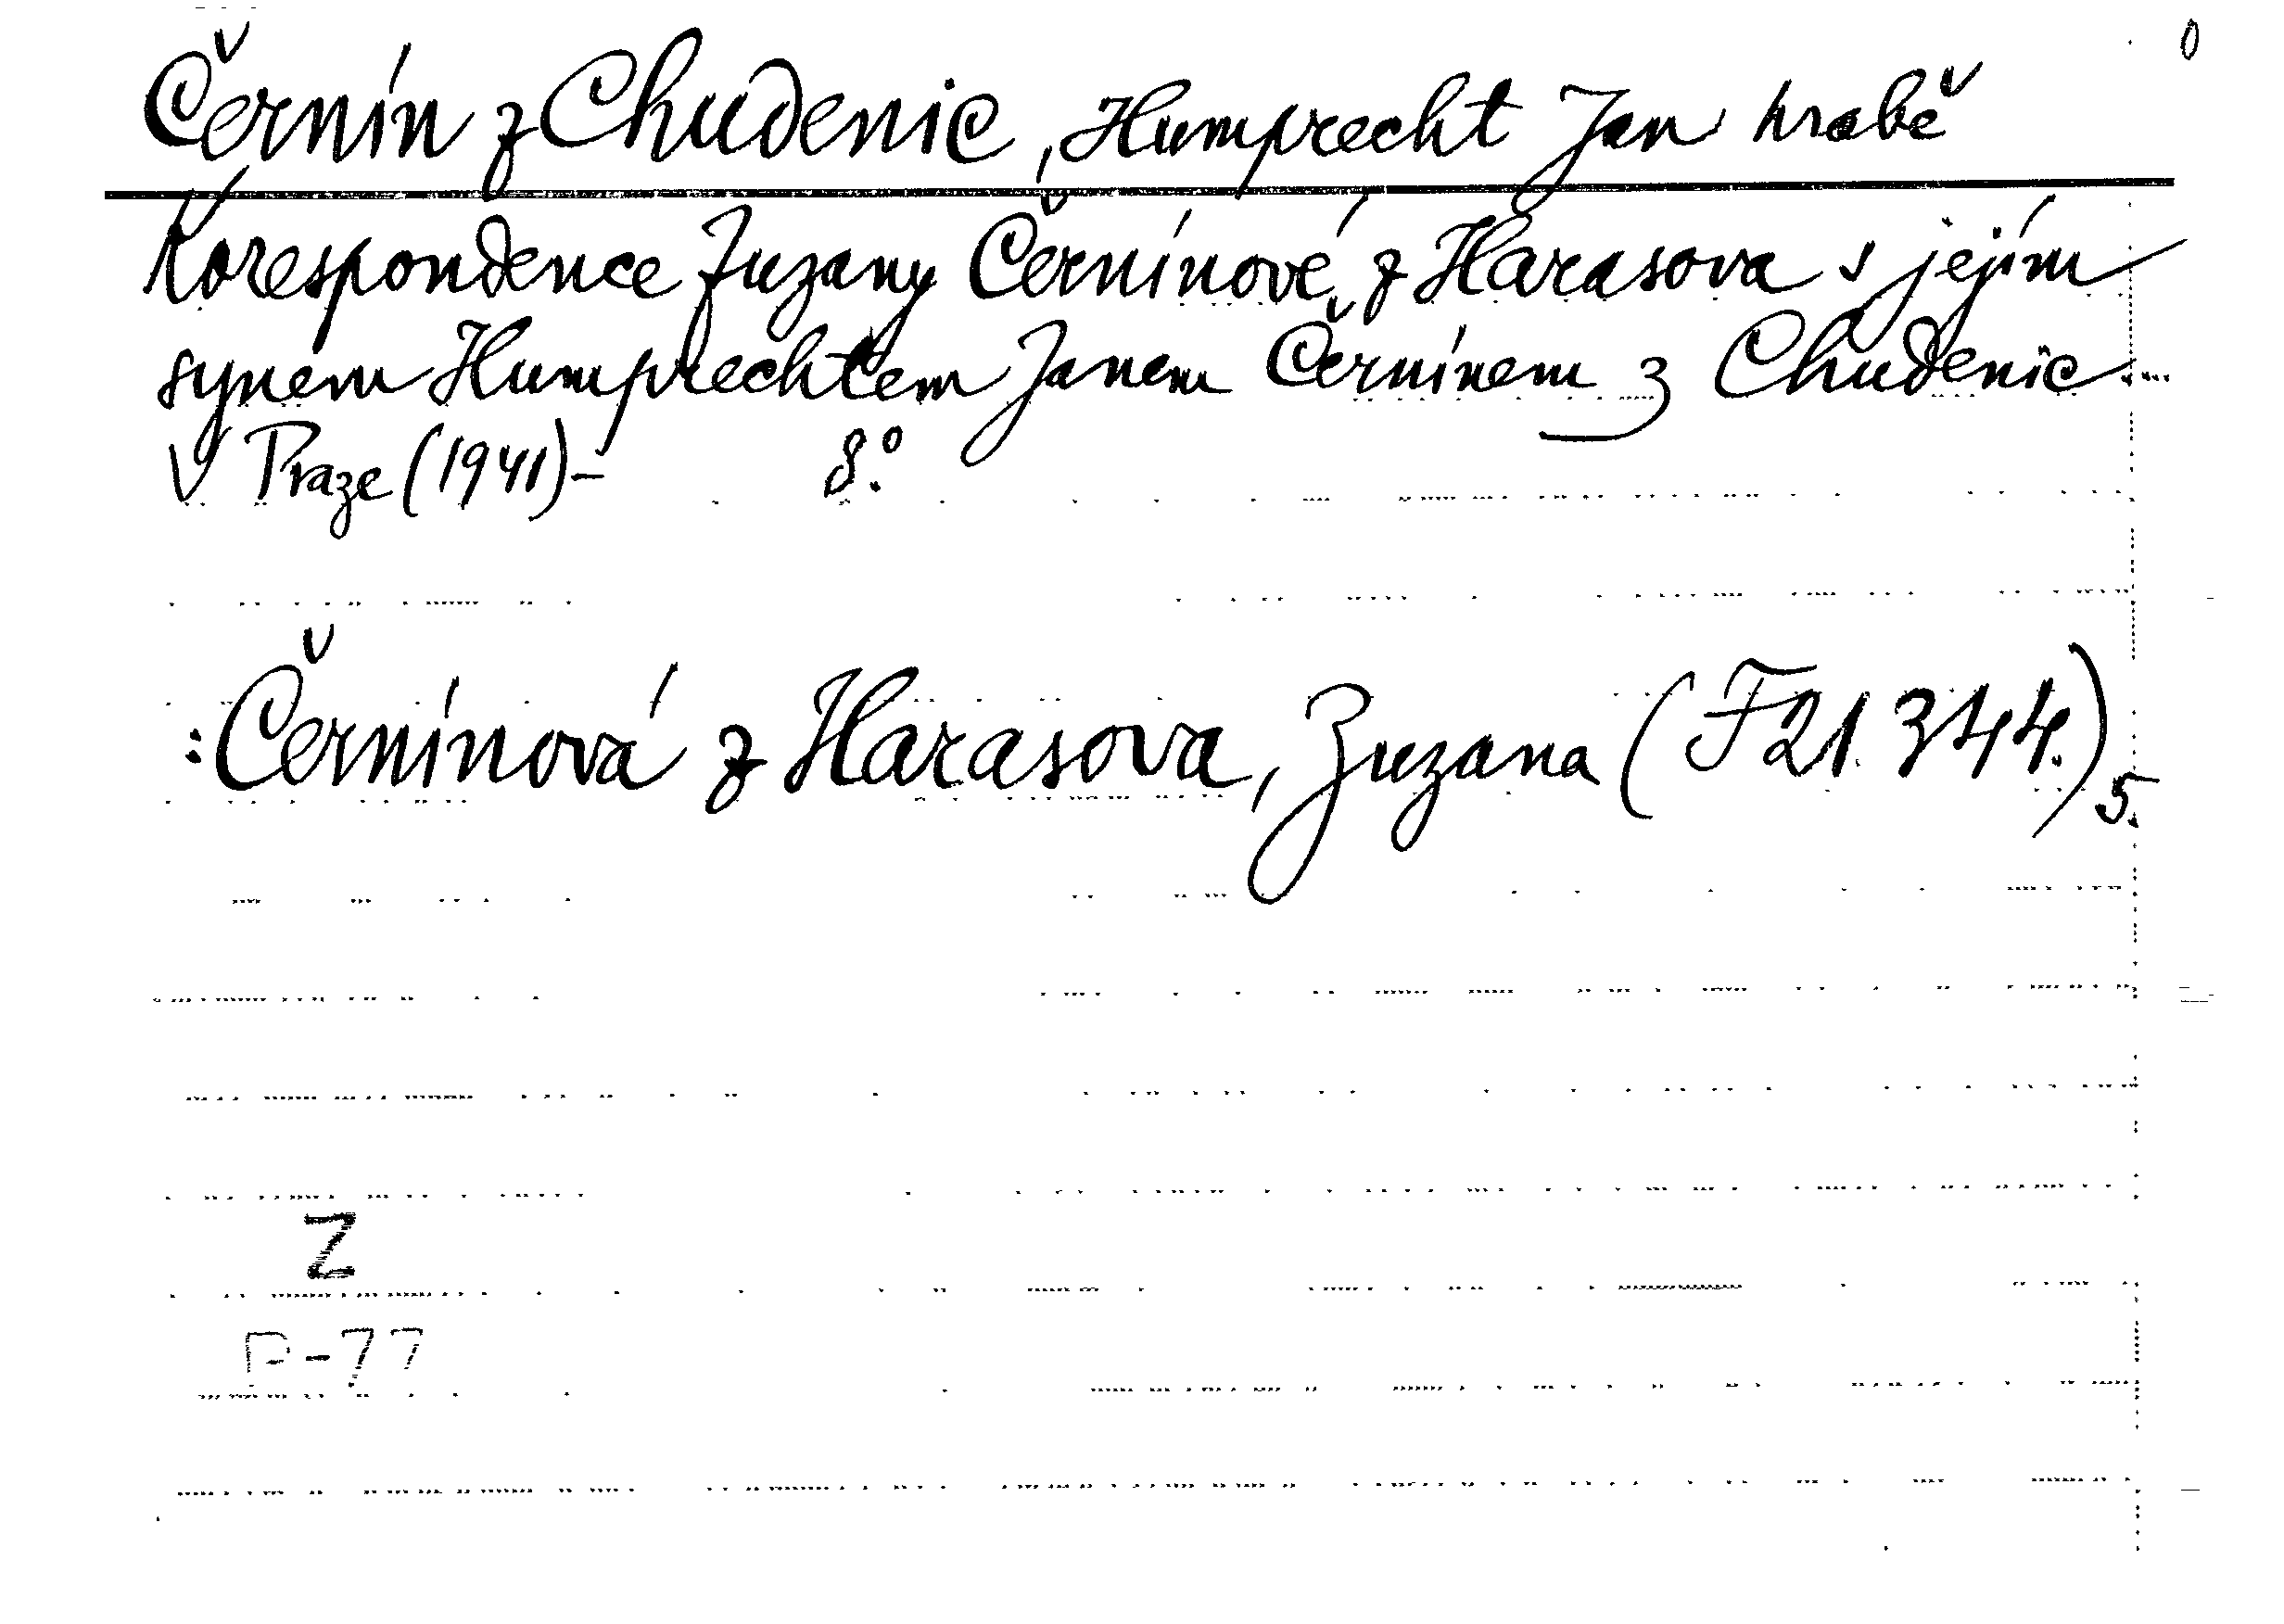 Černín z Chudenic, Humprecht Jan hrabě
Korespondence Zuzany Černínové z Harasova s jejím
synem Humprechtem Janem Černínem z Chudenic...
V Praze (1941)- 8.º
:Černínová z Harasova, Zuzana (F21.344.)
5.
Z
P-77